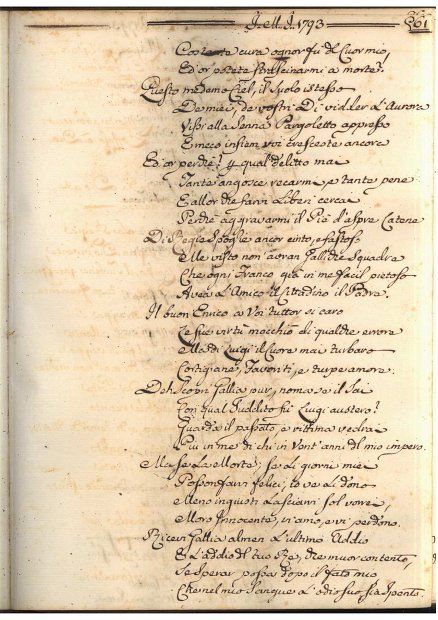 J. M. J. 1793
261
Costante cura ognor fù del Cuor mio,
Ed or potete strascinarmi a morte?
Questo medemo Ciel, il Suolo istesso
De miei, de vostri Di vidder l'Aurora
Vissi alla Senna Pargoletto appresso
E meco insiem voi cresceste ancora
Ed or perchè? qual delitto mai
Tante angosce recarmi, e tante pene
E allor che farvi Liberi cercai
Perchè aggravarmi il Piè d'aspre Catene
Di Regie Spoglie ancor cinto, e fastoso
Elle visto non avran Gallidie Squadra
Che ogni Franco già in me facil pietoso
Avea l'Amico il Cittadino il Padre.
Il buon Enrico a Voi tuttor si caro
Le sue virtù macchiò di qualche errore
Ma di Luigi il Cuore mai turbaro
Cortigiane, Favoriti, e turpe amore.
Deh scopri Gallia pur, noma se il Sai
Con qual Suddito fù Luigi austero?
Guarda il passato, e vittima vedrai
Più in me di chi in vent'anni del mio impero.
Ma se la Morte, se i giorni miei
Posson farvi felici, io ve li dono
Meno ingiusti Lasciarvi sol vorrei,
Moro Innocente, vi amo, e vi perdono.
Ricevi Gallia almen l'ultimo Addio
È l'addio del tuo Re, che muor contento,
Se Sperar possa dopo il fato mio
Che nel mio Sangue l'odio suo sia spento.